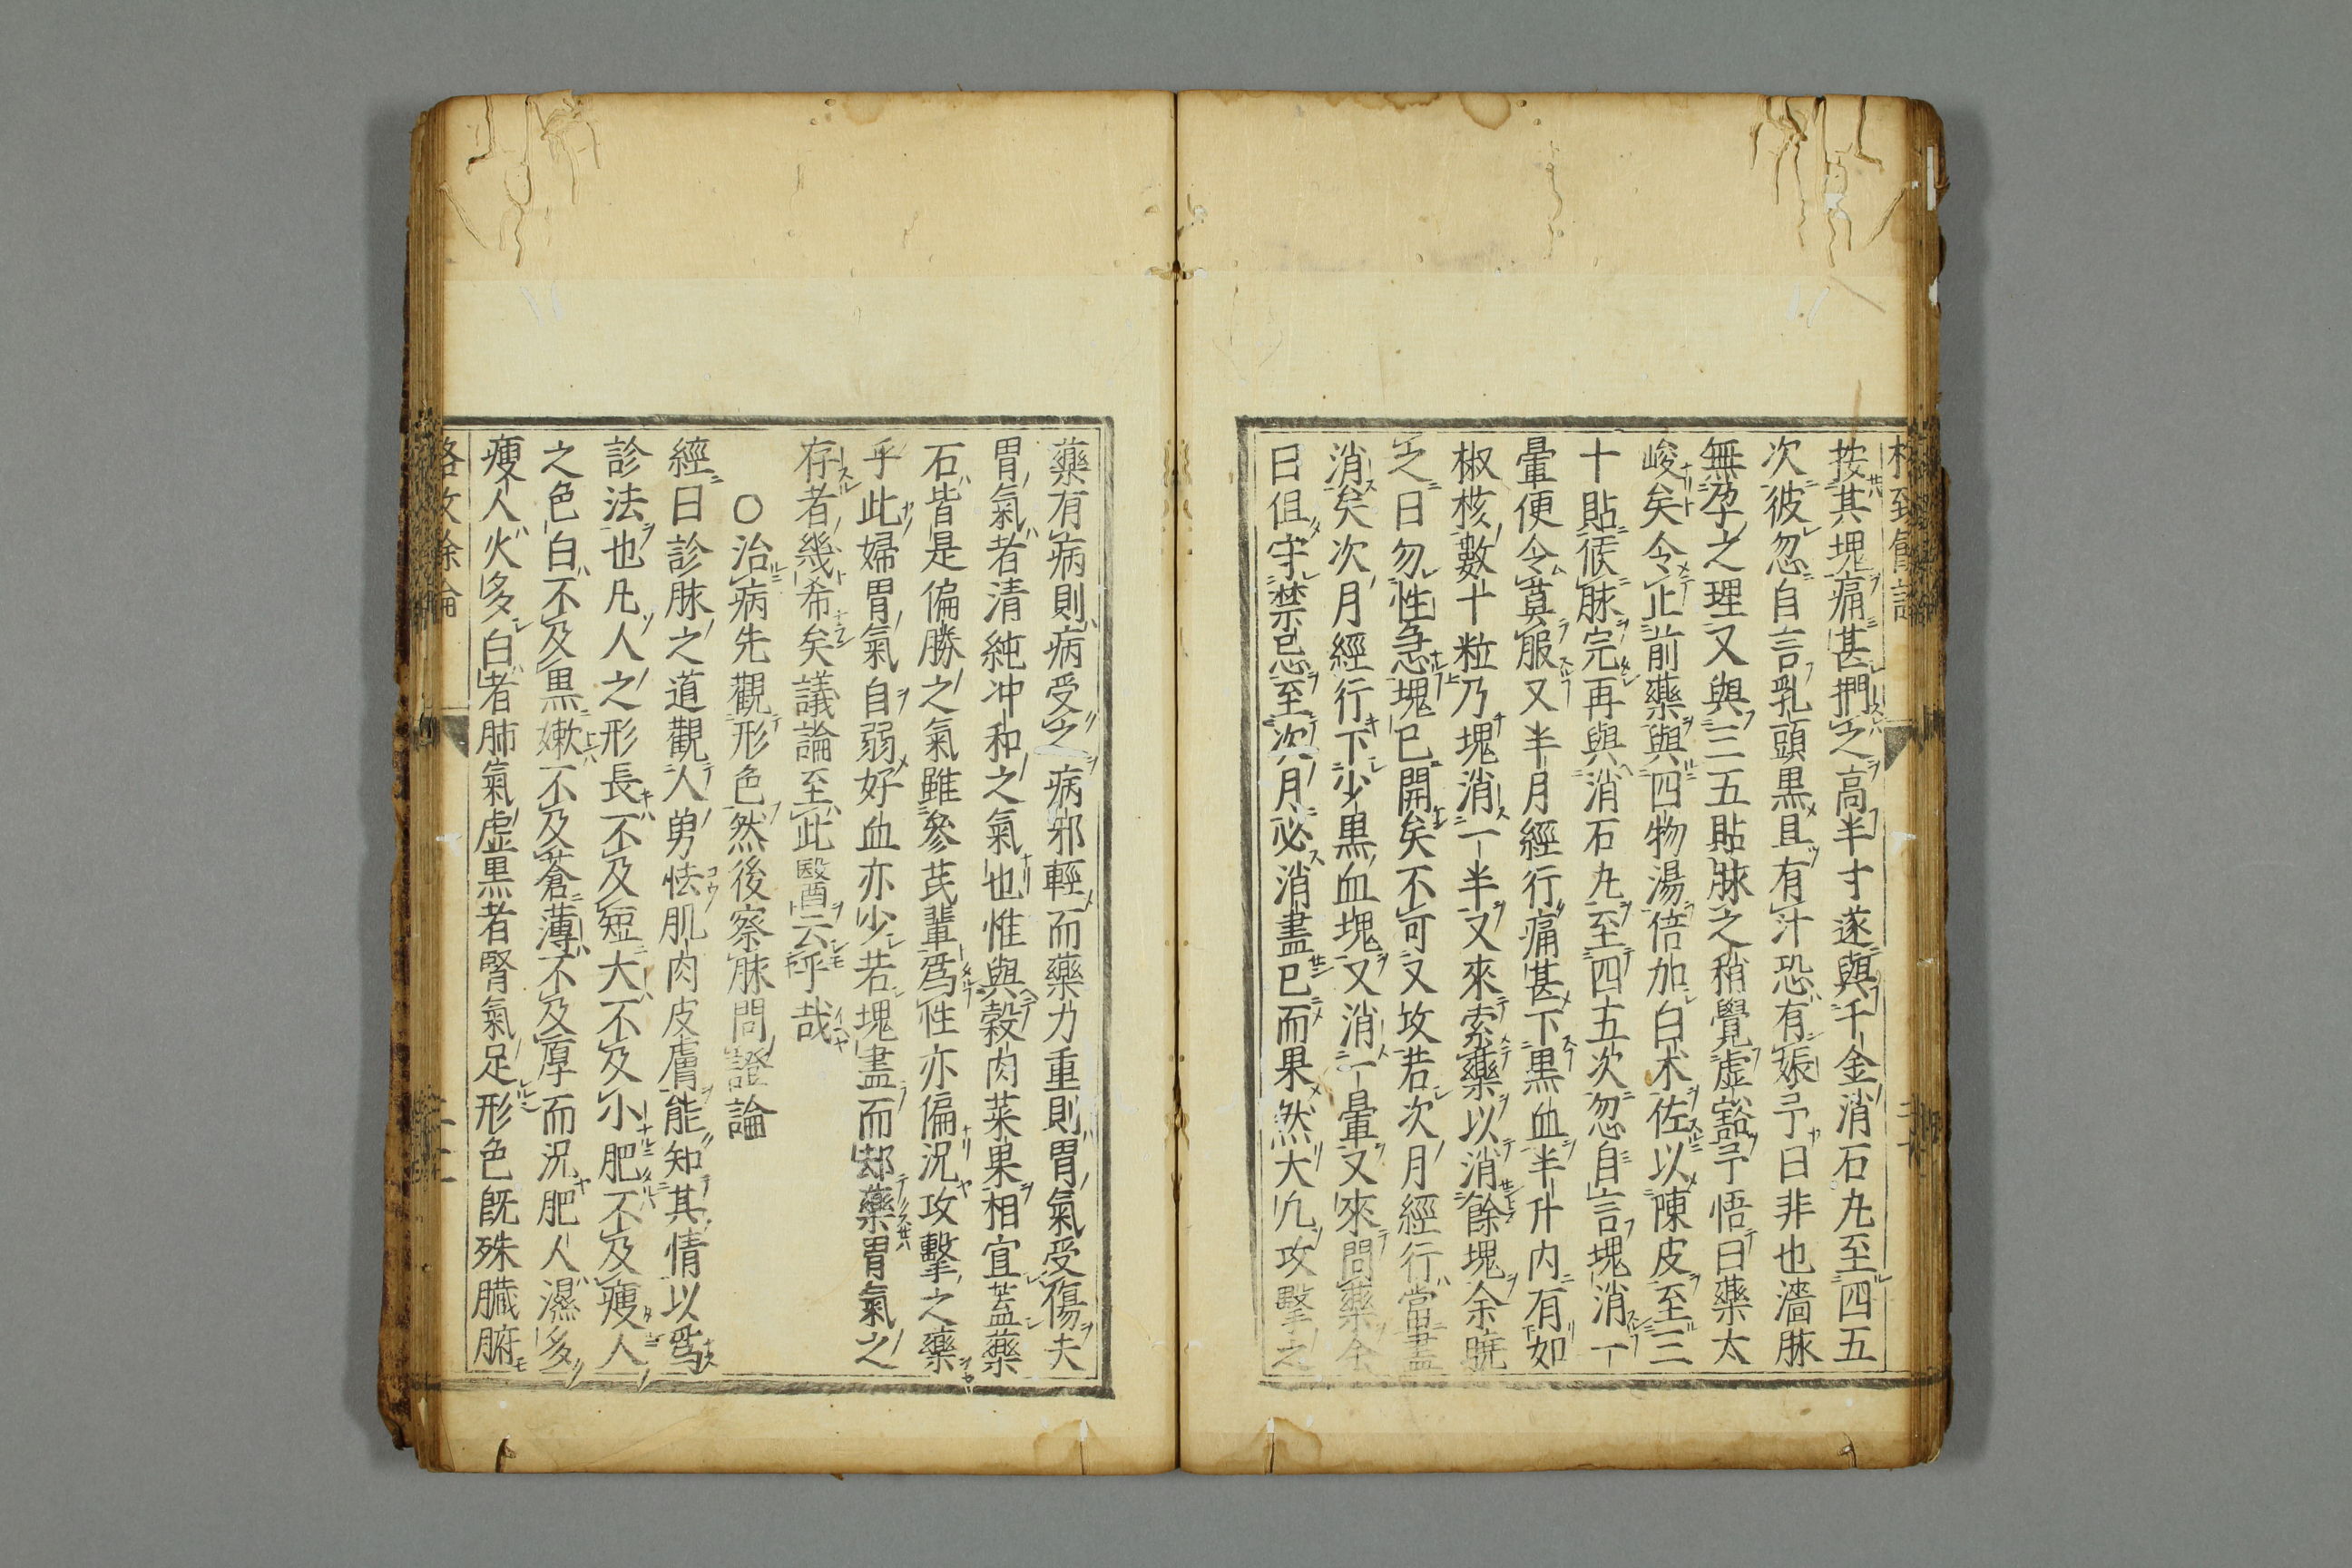 按其塊痛甚捫之高半寸遂與千金消石丸至四五
次彼忽自言乳頭黒且有汁恐有娠予曰非也濇脉
無孕之理又與三五貼脉之稍覺虚豁予悟曰藥太
峻矣令止前藥與四物湯倍加白术佐以陳皮至三
十貼候脉完再與消石丸至四五次忽自言塊消一
暈便令莫服又半月經行痛甚下黒血半升内有如
椒核數十粒乃塊消一半又來索藥以消餘塊余曉
之曰勿性急塊已開矣不可又攻若次月經行當盡
消矣次月經行下少黒血塊又消一暈又來問藥余
曰但守禁忌至次月必消盡已而果然大凡攻擊之
藥有病則病受之病邪輕而藥力重則胃氣受傷夫
胃氣者清純冲和之氣也惟與穀肉菜果相宜蓋藥
石皆是偏勝之氣雖參芪輩爲性亦偏況攻擊之藥
乎此婦胃氣自弱好血亦少若塊盡而却藥胃氣之
存者幾希矣議論至此醫云乎哉
○治病先觀形色然後察脉問證論
經曰診脉之道觀人勇怯肌肉皮膚能知其情以爲
診法也凡人之形長不及短大不及小肥不及瘦人
之色白不及黒嫩不及蒼薄不及厚而況肥人濕多
瘦人火多白者肺氣虚黒者腎氣足形色既殊臓腑
格致餘論